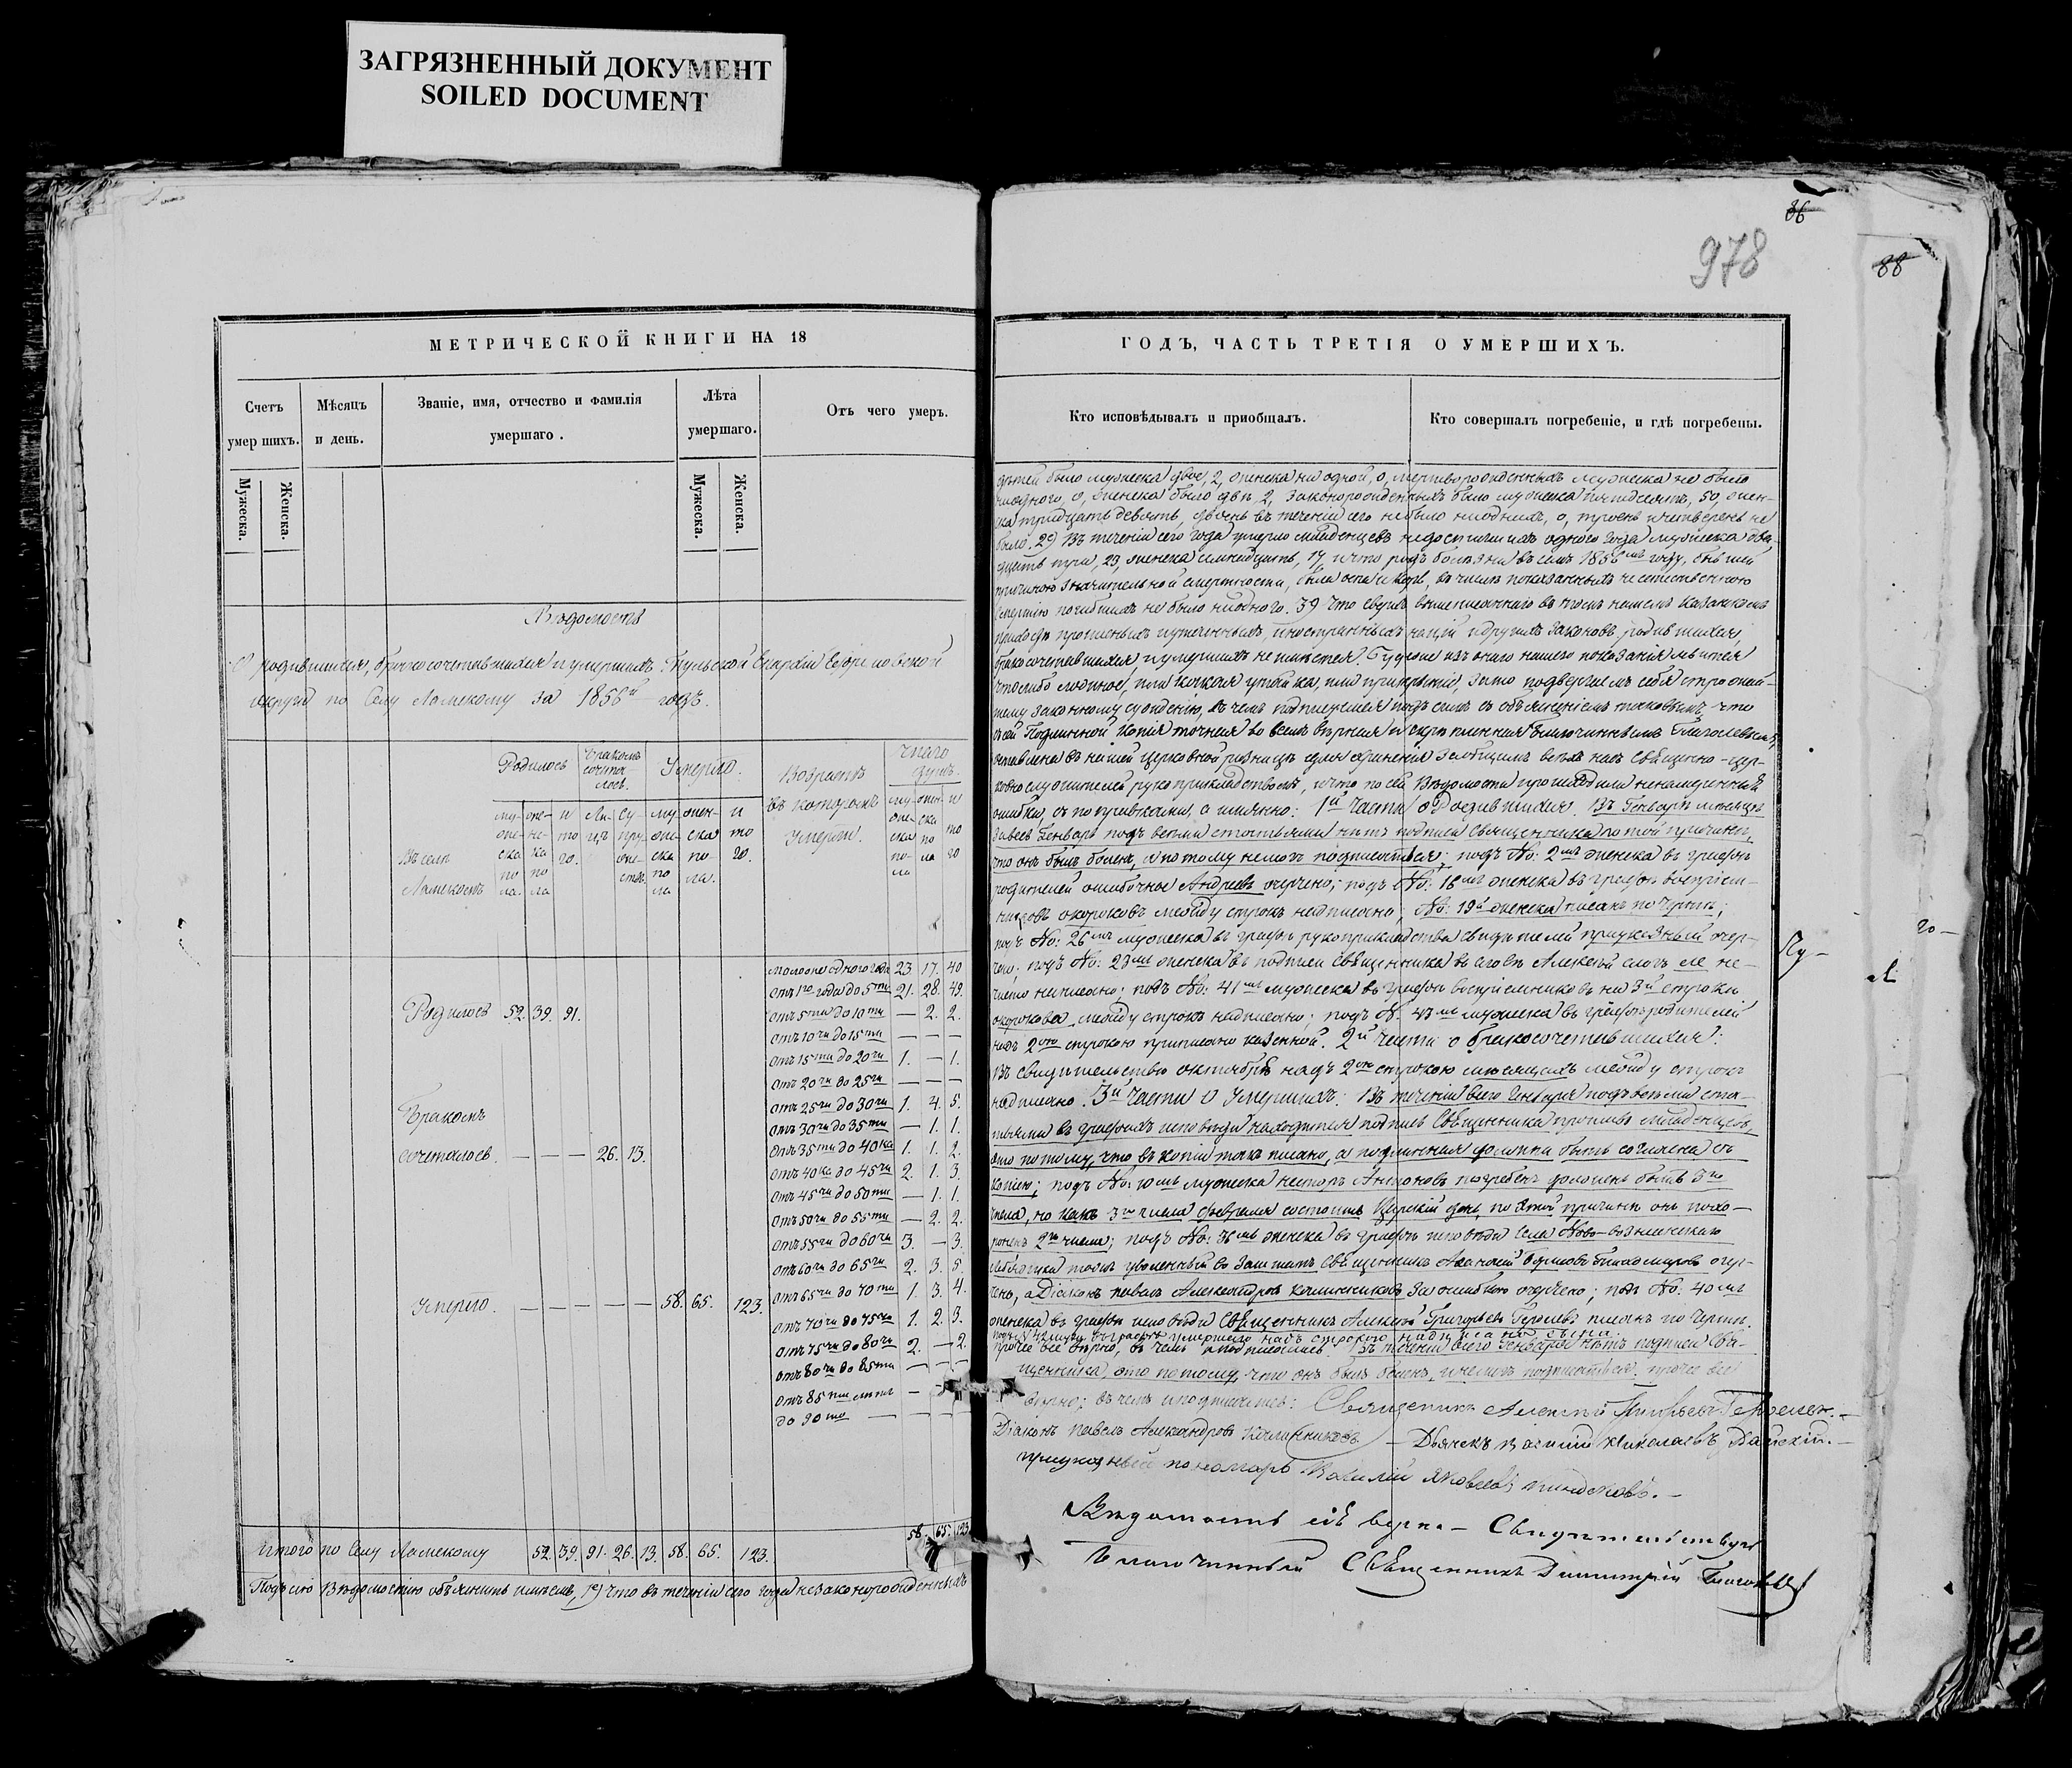 ЗАГРЯЗНЕННЫЙ ДОКУМЕНТ
SOILED DOCUMENT
МЕТРИЧЕСКОЙ КНИГИ НА 18
Счетъ умершихъ.
Мѣсяцъ и день.
Званіе, имя, отчество и фамилія умершаго.
Лѣта умершаго.
Отъ чего умеръ.
Мужеска. Женска.
Мужеска. Женска.
Вѣдомость
О родившихся, бракосочетавшихся и умершихъ Тульской Епархіи Ефремовской
округи по Селу Ламскому за 1856й годъ.
Въ селѣ Ламскомъ
Родилось
мужеска пола женска пола итого.
Бракомъ сочеталось.
Лицъ Супружествъ
Умерло.
мужеска пола женска пола. итого.
Возрастъ въ которомъ умерли.
числомъ душъ.
мужеска пола женска пола итого
моложе одного года 23. 17. 40
отъ 1го года до 5ти 21. 28. 49.
Родилось 52. 39. 91.
отъ 5ти до 10ти — 2. 2.
отъ 10ти до 15ти — — —
отъ 15ти до 20ти 1. — 1.
отъ 20ти до 25ти — — —
отъ 25ти до 30ти 1. 4. 5.
отъ 30ти до 35ти — 1. 1.
Бракомъ
сочеталось. — — — 26. 13.
отъ 35ти до 40ка 1. 1. 2.
отъ 40ка до 45ти 2. 1. 3.
отъ 45ти до 50ти — 1. 1.
отъ 50ти до 55ти — 2. 2.
отъ 55ти до 60ти 3. — 3.
отъ 60ти до 65ти 2. 3. 5.
отъ 65ти до 70ти 1. 3. 4.
Умерло. — — — — — 58. 65. 123.
отъ 70ти до 75ти 1. 2. 3.
отъ 75ти до 80ти 2. — 2.
отъ 80ти до 85ти — — —
отъ 85ти лѣтъ —
до 90то — — — —
58. 65. 123
Итого по Селу Ламскому 52. 39. 91. 26. 13. 58. 65. 123.
Подъ сею Вѣдомостію объяснить имѣемъ, 1е) что въ теченіи сего года незаконнорожденныхъ
36
978
88
ГОДЪ, ЧАСТЬ ТРЕТІЯ О УМЕРШИХЪ.
Кто исповѣдывалъ и пріобщалъ.
Кто совершалъ погребеніе, и гдѣ погребены.
дѣтей было мужеска двое, 2, женска ни одной, 0, мертворожденныхъ мужеска не было
ниодного, 0, женска было двѣ, 2, законорожденныхъ было мужеска пятьдесятъ, 50, жен-
ска тридцать девять, двоень въ теченіи сего не было ниоднихъ, 0, троень и четверень не
было. 2е) Въ теченіи сего года умерло младенцевъ недостигшихъ одного года мужеска два-
дцать три, 23, женска семнадцать, 17, и что родъ болѣзни въ семъ 1856мъ году, бывшей
причиною значительной смертности, была оспа и корь, въ числѣ показанныхъ неестественною
смертію погибшихъ не было ниодного. 3е) Что сверхъ вышеписаннаго въ томъ нашемъ
приходѣ иностранныхъ націй и другихъ законовъ родившихся,
бракосочетавшихся, и умершихъ неимѣется. Буде же изъ онаго нашего показанія явится
что либо ложное, или какая утайка, или прикрытіе, за то подвергаемъ себя строжай-
шему законному сужденію, въ чемъ подписуемся подъ симъ съ объясненіемъ таковымъ что
сей подлинной копія точная во всемъ вѣрная и скрѣпленная Благочиннымъ
оставлена въ нашей церковной ризницѣ для храненія за общимъ всѣхъ насъ Священно-цер-
ковнослужителей рукоприкладствомъ, и что по сей Вѣдомости ненамѣренныя
ошибки, съ поправками, а именно: 1й части о Родившихся. Въ Генварѣ мѣсяцѣ
подъ всѣми статьями нѣтъ подписи священника по той причинѣ,
что онъ былъ боленъ, и потому немогъ подписаться; подъ №: 2мъ женска въ графѣ
родителей ошибочное Андреевъ очерчено; подъ №: 16мъ женска въ графѣ воспріем-
никовъ между строкъ надписано; №: 19й женска писанъ по чертѣ;
подъ №: 26мъ мужеска въ графѣ рукоприкладства свидѣтелей очер-
чено; подъ №: 23мъ женска въ подписи священника
чисто написано; подъ №: 41мъ мужеска въ графѣ воспріемниковъ на 3й строкѣ
между строкъ надписано; подъ №: мужеска въ графѣ родителей
надъ 2ою строкою приписано казенной. 2й части о бракосочетавшихся:
въ свидѣтельствѣ октября надъ 2ою строкою между строкъ
надписано. 3й части о Умершихъ: Въ теченіи всего Генваря подъ всѣми ста-
тьями въ графахъ исповѣди находится подпись Священника противъ младенцевъ,
это потому, что въ копіи такъ писано, а подлинная должна быть согласна съ
копіею; подъ №: 10мъ мужеска Несторъ Антоновъ погребенъ долженъ быть 3го
числа, но какъ 3го числа февраля состоитъ Царскій день, по этой причинѣ онъ похо-
роненъ 2го числа; подъ №: женска въ графѣ исповѣди села
очер-
чено, а Діаконъ Павелъ Александровъ Калинниковъ за ошибкою очерчено; подъ №: 40мъ
женска въ графѣ исповѣди Священникъ Алексѣй Григорьевъ писанъ по чертѣ.
въ графѣ умершаго надъ строкою надписано сына.
прочее все вѣрно, въ чемъ и подписались Въ теченіи всего Генваря нѣтъ подписи Свя-
щенника, это потому, что онъ былъ боленъ, и немогъ подписаться. прочее все
вѣрно; въ чемъ и подписались: Священникъ Алексѣй Григорьевъ
Діаконъ Павелъ Александровъ Калинниковъ — Дьячекъ Василій Николаевъ
пономарь Василій Яковлевъ
Вѣдомость сія верна — Свидѣтельствую
Благочинный Священникъ Димитрій